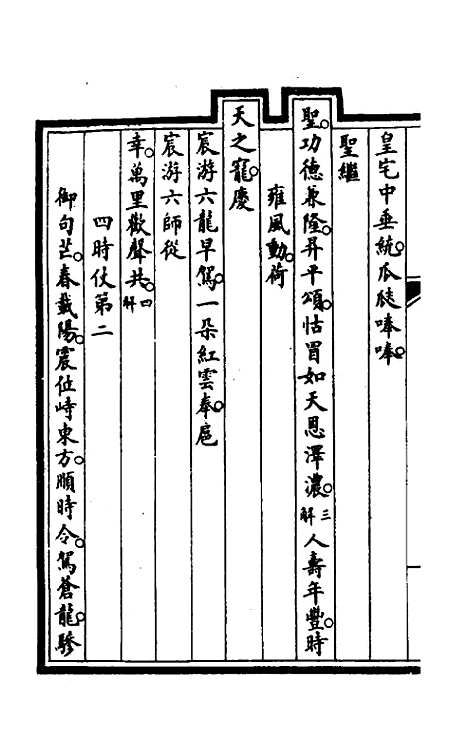 皇宅中垂統。瓜瓞唪唪。
聖繼
聖。功德兼隆。昇平頌。怙冒如天恩澤濃。三解人壽年豐。時
雍風動。荷
天之寵慶
宸游六龍早駕。一朵紅雲奉。扈
宸游六師從
幸。萬里歡聲共。四解
四時仗第二
御句芒。春載陽。震位峙東方。順時令。駕蒼龍。驂